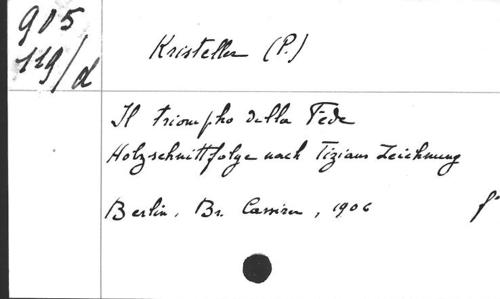 905
119/d
Kristeller (P.)
Il triompho della Fede
Holzschnittfolge nach Tizians Zeichnung
Berlin, Br. Cassirer, 1906 f°